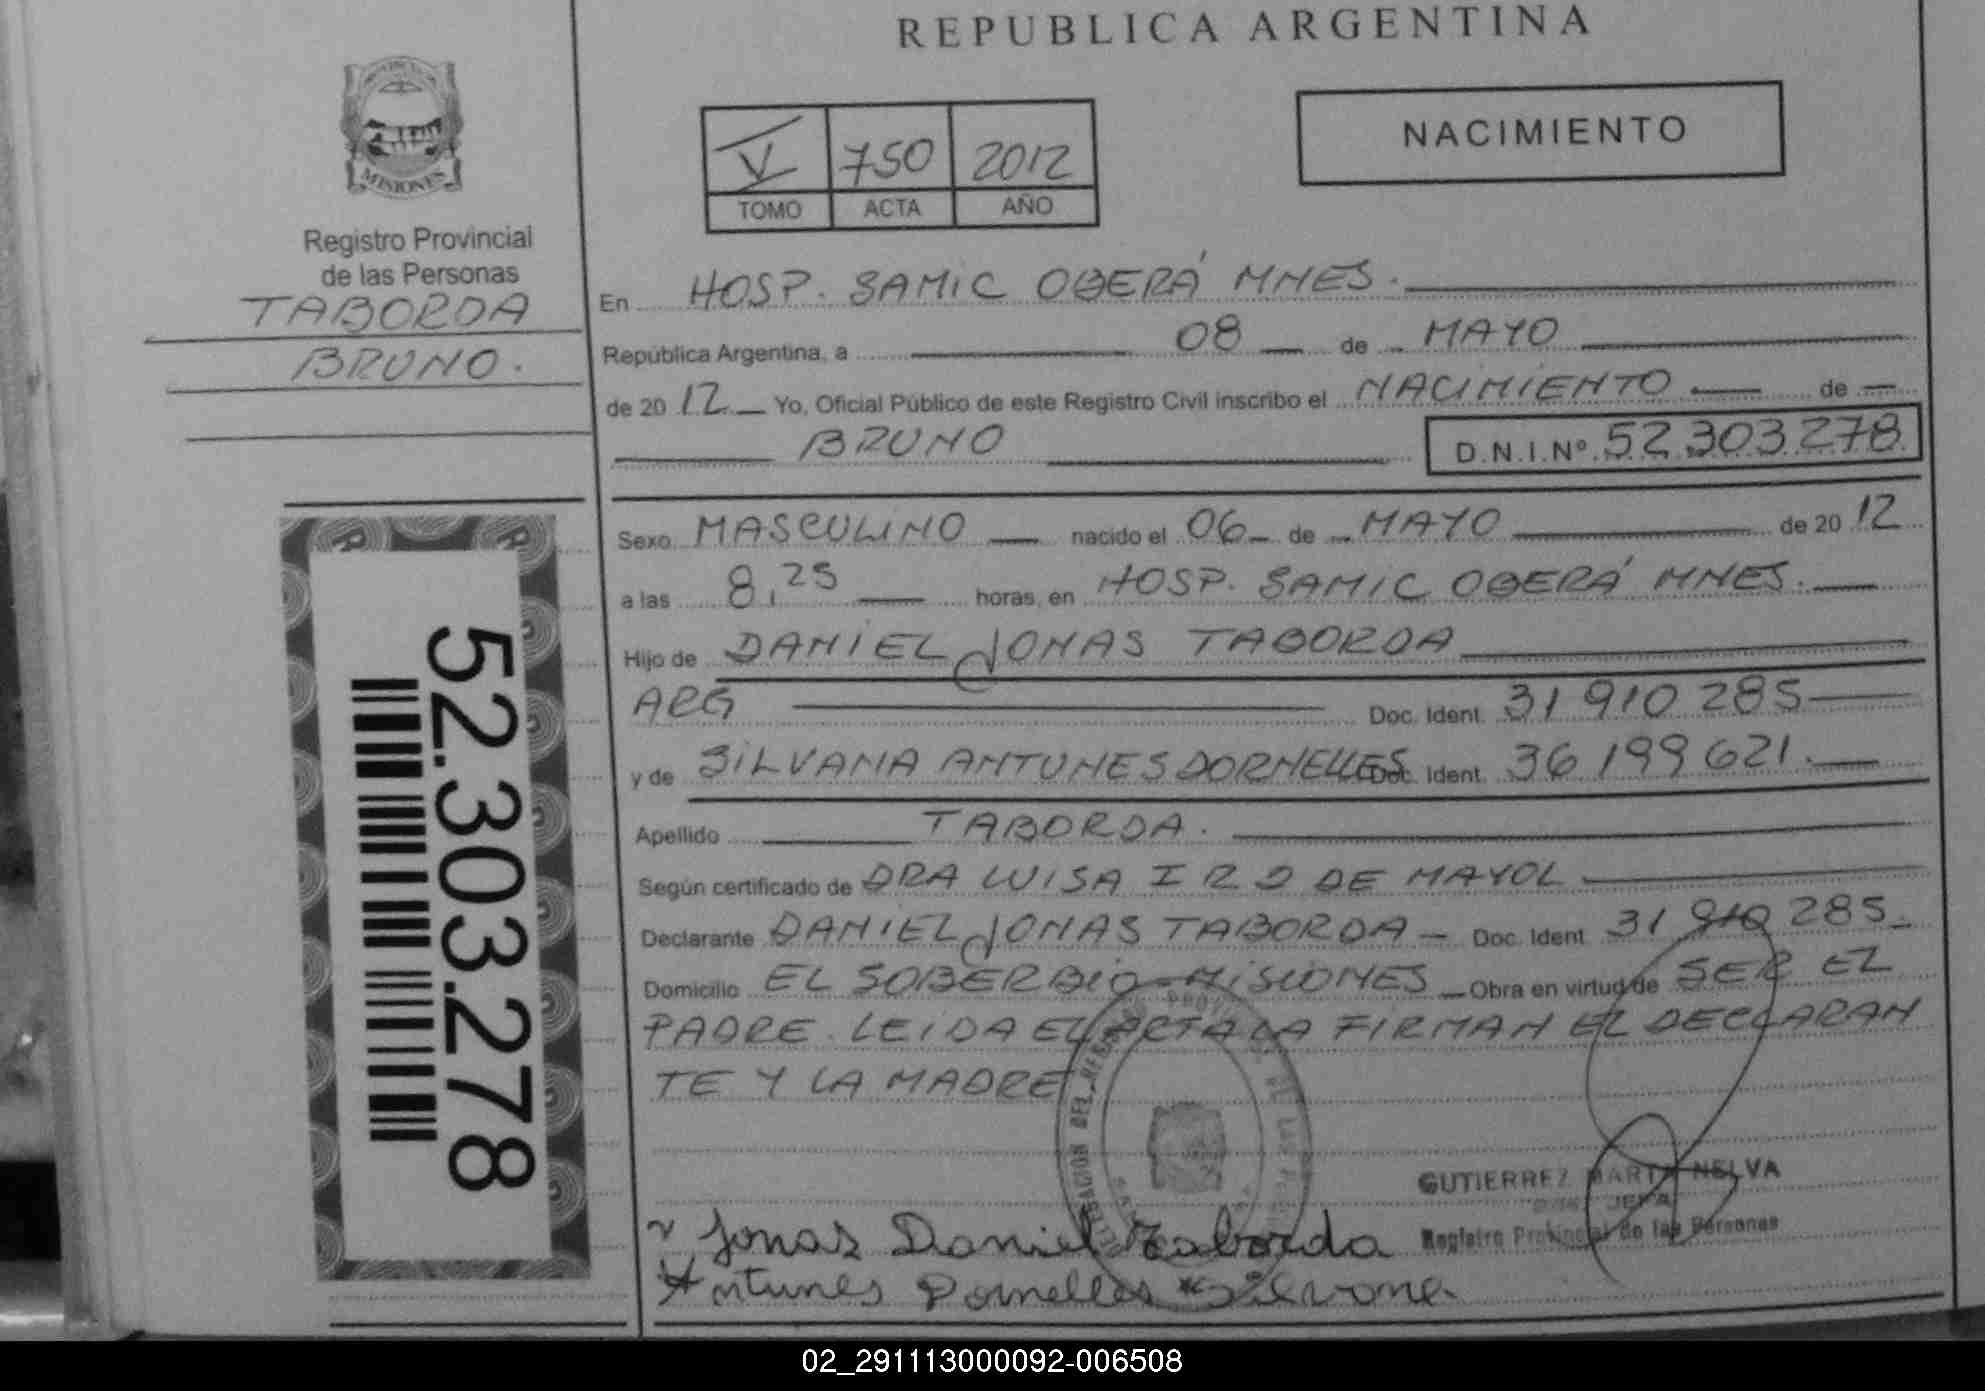 REPUBLICA ARGENTINA
MISIONES
Registro Provincial
de las Personas
TABORDA
BRUNO.
52.303.278
V 750 2012
TOMO ACTA AÑO
NACIMIENTO
En HOSP. SAMIC OBERÁ MNES.
República Argentina, a 08 de MAYO
de 20 12 Yo, Oficial Público de este Registro Civil inscribo el NACIMIENTO de
BRUNO D.N.I.Nº 52.303.278
Sexo MASCULINO nacido el 06 de MAYO de 20 12
a las 8,25 horas, en HOSP. SAMIC OBERÁ MNES.
Hijo de DANIEL JONAS TABORDA
ARG Doc. Ident. 31 910 285
y de SILVANA ANTUNES DORNELLES Doc. Ident. 36 199 621.
Apellido TABORDA.
Según certificado de DRA LUISA I R D DE MAYOL
Declarante DANIEL JONAS TABORDA - Doc. Ident 31 910 285
Domicilio EL SOBERBIO-MISIONES Obra en virtud de SER EL
PADRE. LEIDA EL ACTA LA FIRMAN EL DECLARAN
TE Y LA MADRE
GUTIERREZ MARTA NELVA
JEFA
Registro Provincial de las Personas
Jonas Daniel Taborda
Antunes Dornelles Silvana
02_291113000092-006508